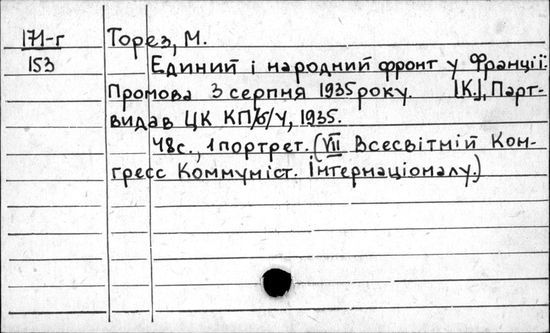 171-г Торез, М.
153 Единий і народний фронт у Франції:
Промова 3 серпня 1935 року. [К.], Парт-
видав ЦК КП/б/У, 1935.
48с., 1 портрет. (VII Всесвітній Кон-
гресс Коммуніст. Інтернаціоналу.)